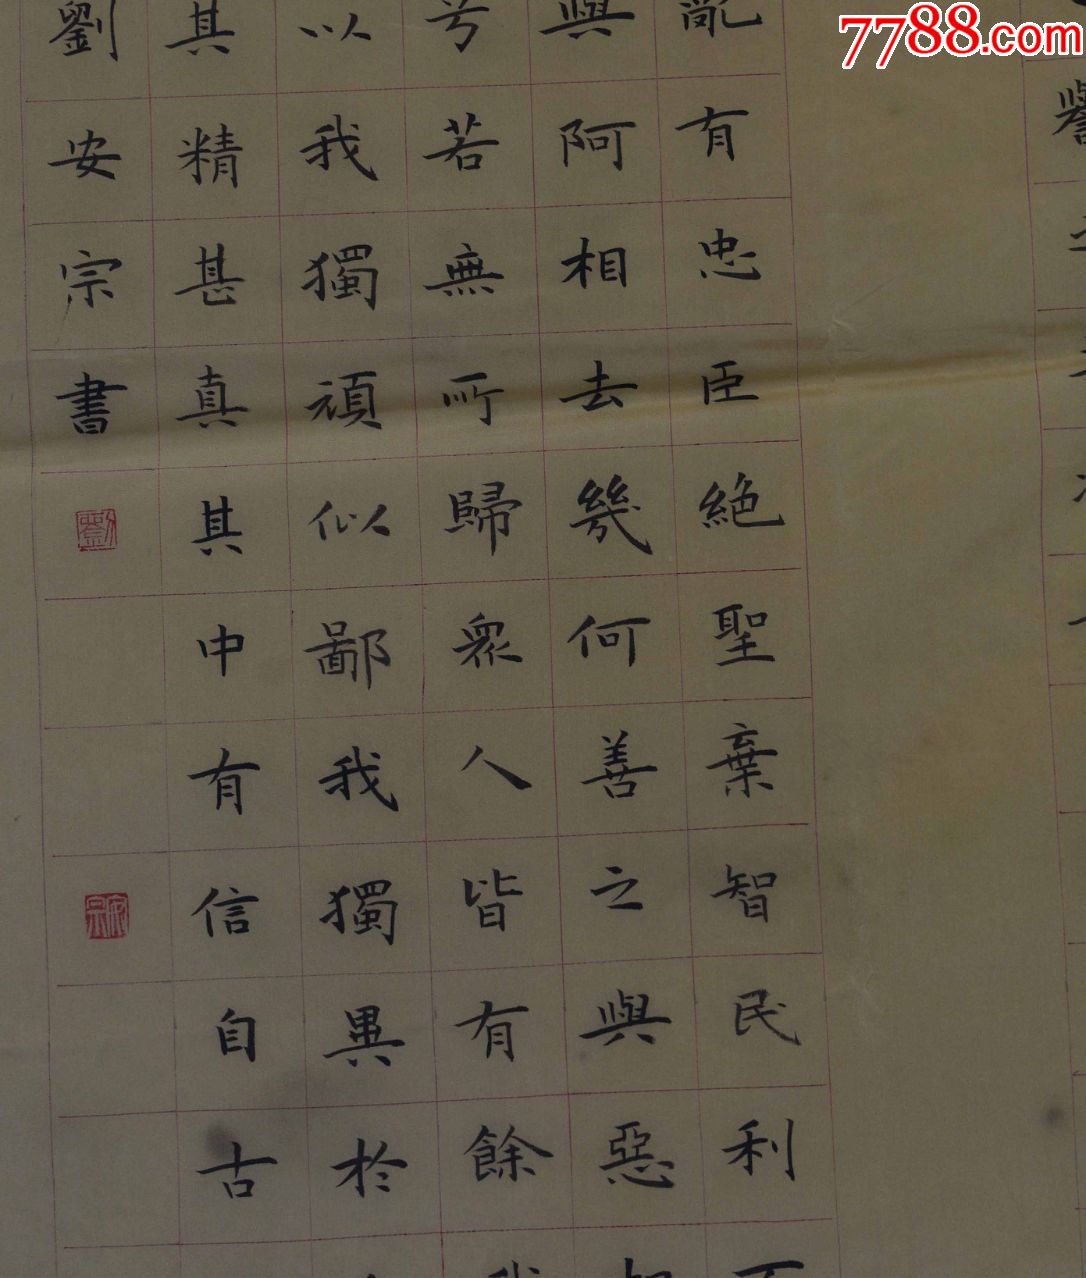 7788.com
譽
亂有忠臣絕聖棄智民利
與阿相去幾何善之與惡
兮若無所歸眾人皆有餘我
以我獨頑似鄙我獨異於
其精甚真其中有信自古
劉安宗書
劉